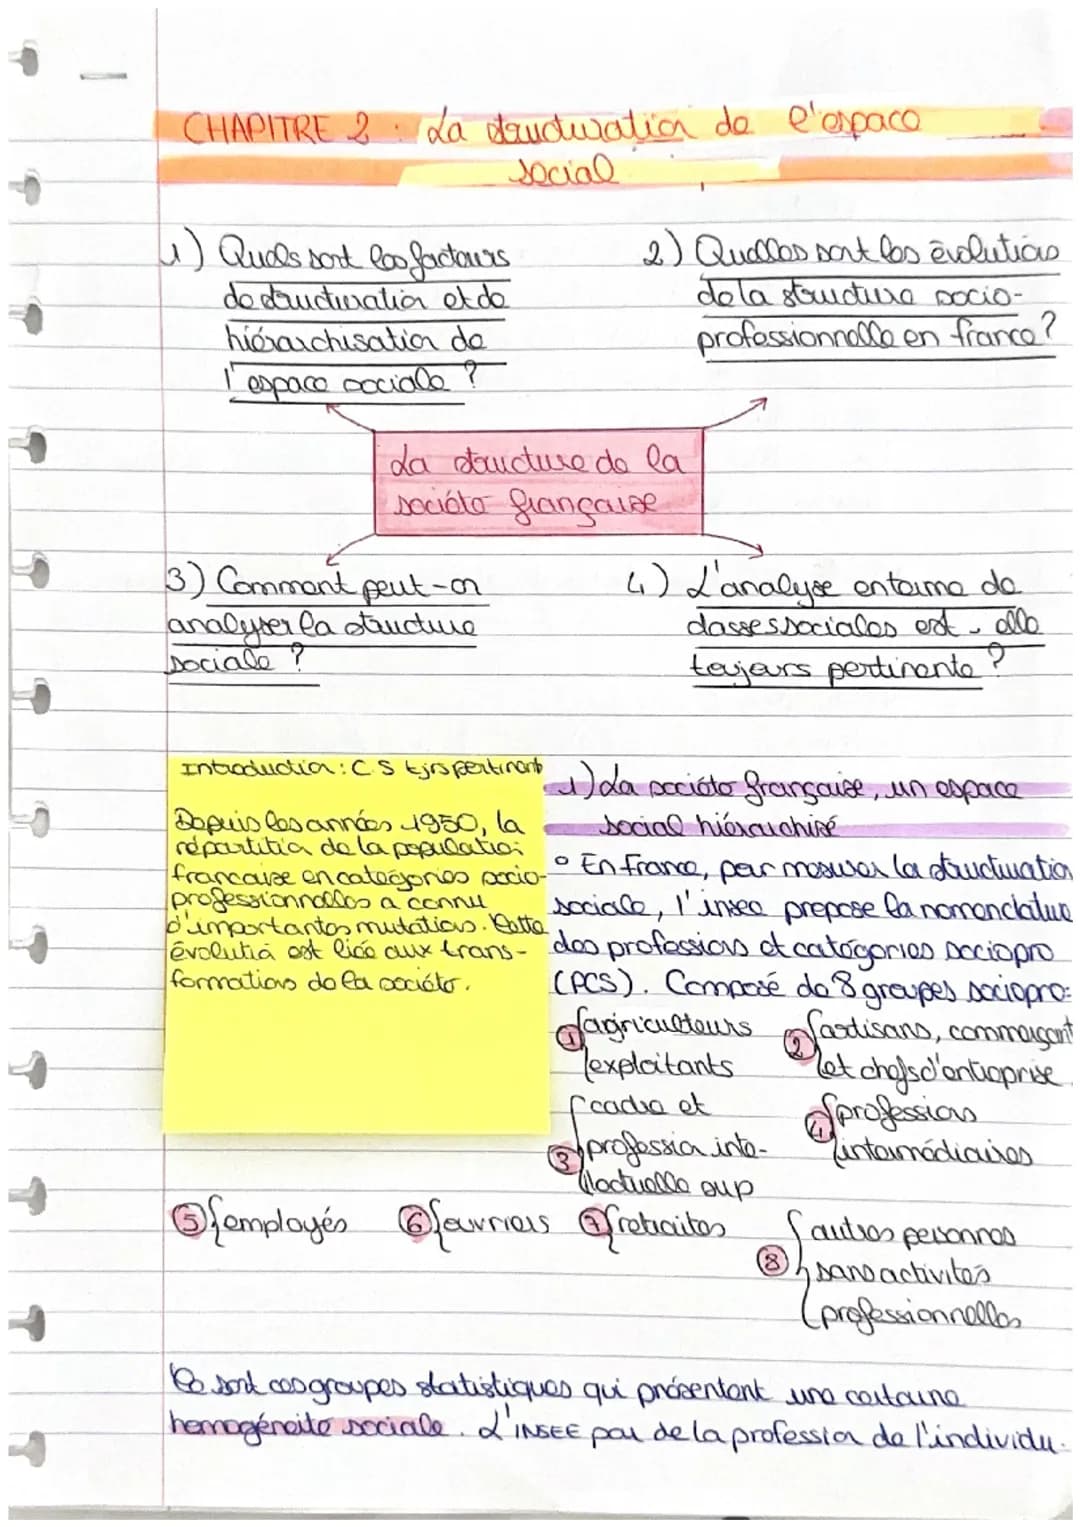 CHAPITRE 2 : La structuration de l'espace
social
1) Quels sont les facteurs
de structuration et de
hiérarchisation de
l'espace sociale ?
2) Quelles sont les évolutions
de la structure socio-
professionnelle en france ?
La structure de la
société française
3) Comment peut-on
analyser la structure
sociale ?
4) L'analyse en terme de
classes sociales est-elle
toujours pertinente ?
Introduction : C.S tjrs pertinent
Depuis les années 1950, la
répartition de la population
francaise en catégories socio-
professionnelles a connu
d'importantes mutations. Cette
évolution est liée aux trans-
formations de la société.
1) La société française, un espace
social hiérarchisé
° En France, pour mesurer la structuration
sociale, l'insee propose la nomenclature
des professions et catégories sociopro
(PCS). Composé de 8 groupes sociopro:
① agriculteurs
exploitants
② artisans, commerçant
et chefs d'entreprise
③ cadre et
profession inte-
llectuelle sup
④ professions
intermédiaires
⑤ employés ⑥ ouvriers ⑦ retraités
⑧ autres personnes
sans activités
professionnelles
Ce sont ces groupes statistiques qui présentent une certaine
homogénéité sociale. L'INSEE par de la profession de l'individu.